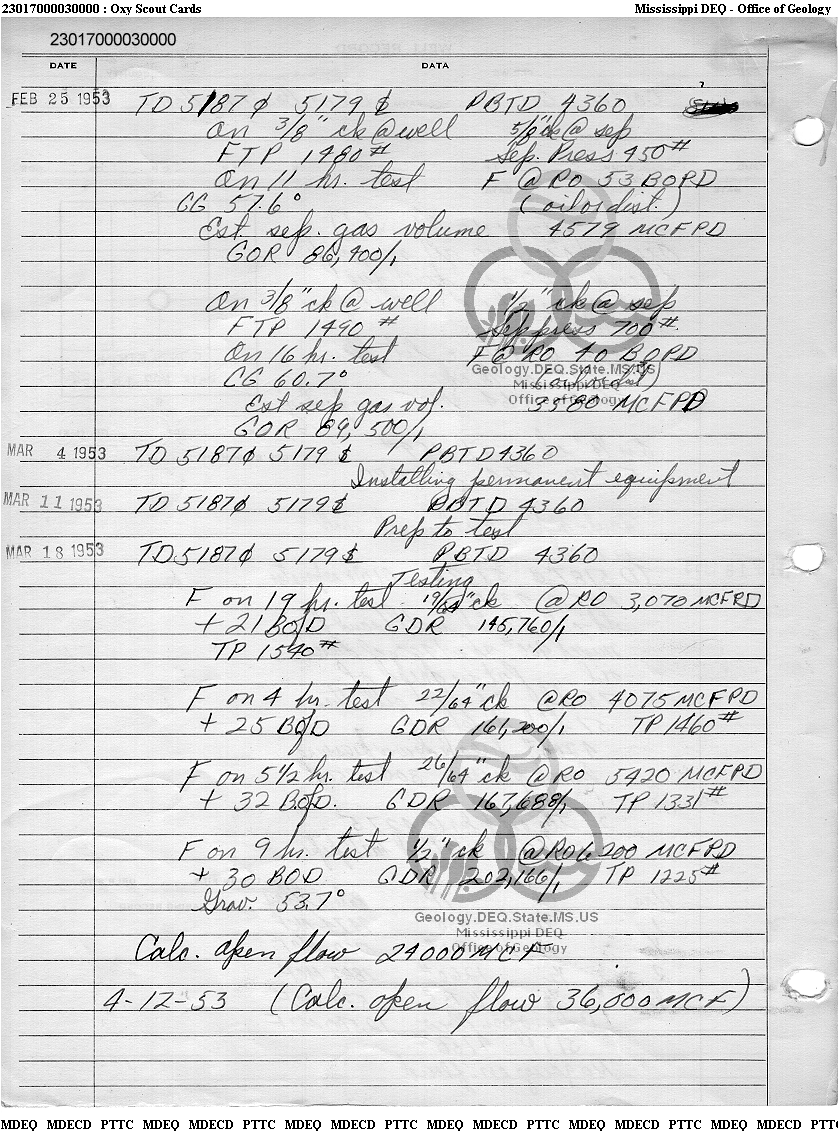 23017000030000 : Oxy Scout Cards Mississippi DEQ - Office of Geology
23017000030000
DATE DATA
FEB 25 1953 TD 5187₵ 5179 $ PBTD 4360
On 3/8" ck @ well 5/8" ck @ sep
FTP 1480# Sep. Press 450#
On 11 hr. test F @ RO 53 BOPD
CG 57.6° (oil or dist.)
Est sep. gas volume 4579 MCFPD
GOR 86,400/1
On 3/8" ck @ well 1/2" ck @ sep
FTP 1490 # Sep press 700#
On 16 hr. test F @ RO 40 BOPD
CG 60.7° (oil or dist)
Est sep gas vol. 3580 MCFPD
GOR 89,500/1
MAR 4 1953 TD 5187₵ 5179 $ PBTD 4360
Installing permanent equipment
MAR 11 1953 TD 5187₵ 5179$ PBTD 4360
Prep to test
MAR 18 1953 TD 5187₵ 5179$ PBTD 4360
Testing
F on 19 hr. test 19/64" ck @ RO 3,070 MCFPD
+ 21 BOD GOR 145,760/1
TP 1540#
F on 4 hr. test 22/64" ck @ RO 4075 MCFPD
+ 25 BOD GOR 161,200/1 TP 1460#
F on 5 1/2 hr. test 26/64" ck @ RO 5420 MCFPD
+ 32 BOD. GOR 167,688/1 TP 1331#
F on 9 hr. test 1/2" ck @ RO 6200 MCFPD
+ 30 BOD GOR 202,166/1 TP 1225#
Grav. 53.7°
Calc. open flow 24000 MCF
4-12-53 (Calc. open flow 36,000 MCF)
Geology.DEQ.State.MS.US
Mississippi DEQ
Office of Geology
Geology.DEQ.State.MS.US
Mississippi DEQ
Office of Geology
MDEQ MDECD PTTC MDEQ MDECD PTTC MDEQ MDECD PTTC MDEQ MDECD PTTC MDEQ MDECD PTTC MDEQ MDECD PTT